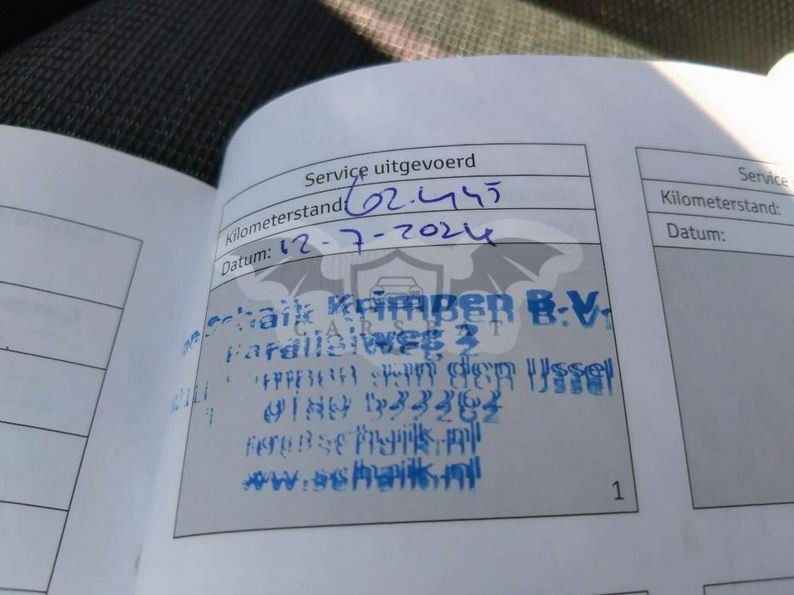 Service uitgevoerd
Kilometerstand: 62.445
Datum: 12-7-2024
CARSBAT
Schaik Krimpen B.V.
Parallelweg 2
aan den IJssel
0180
schaik.nl
www.schaik.nl
1
Service
Kilometerstand:
Datum: